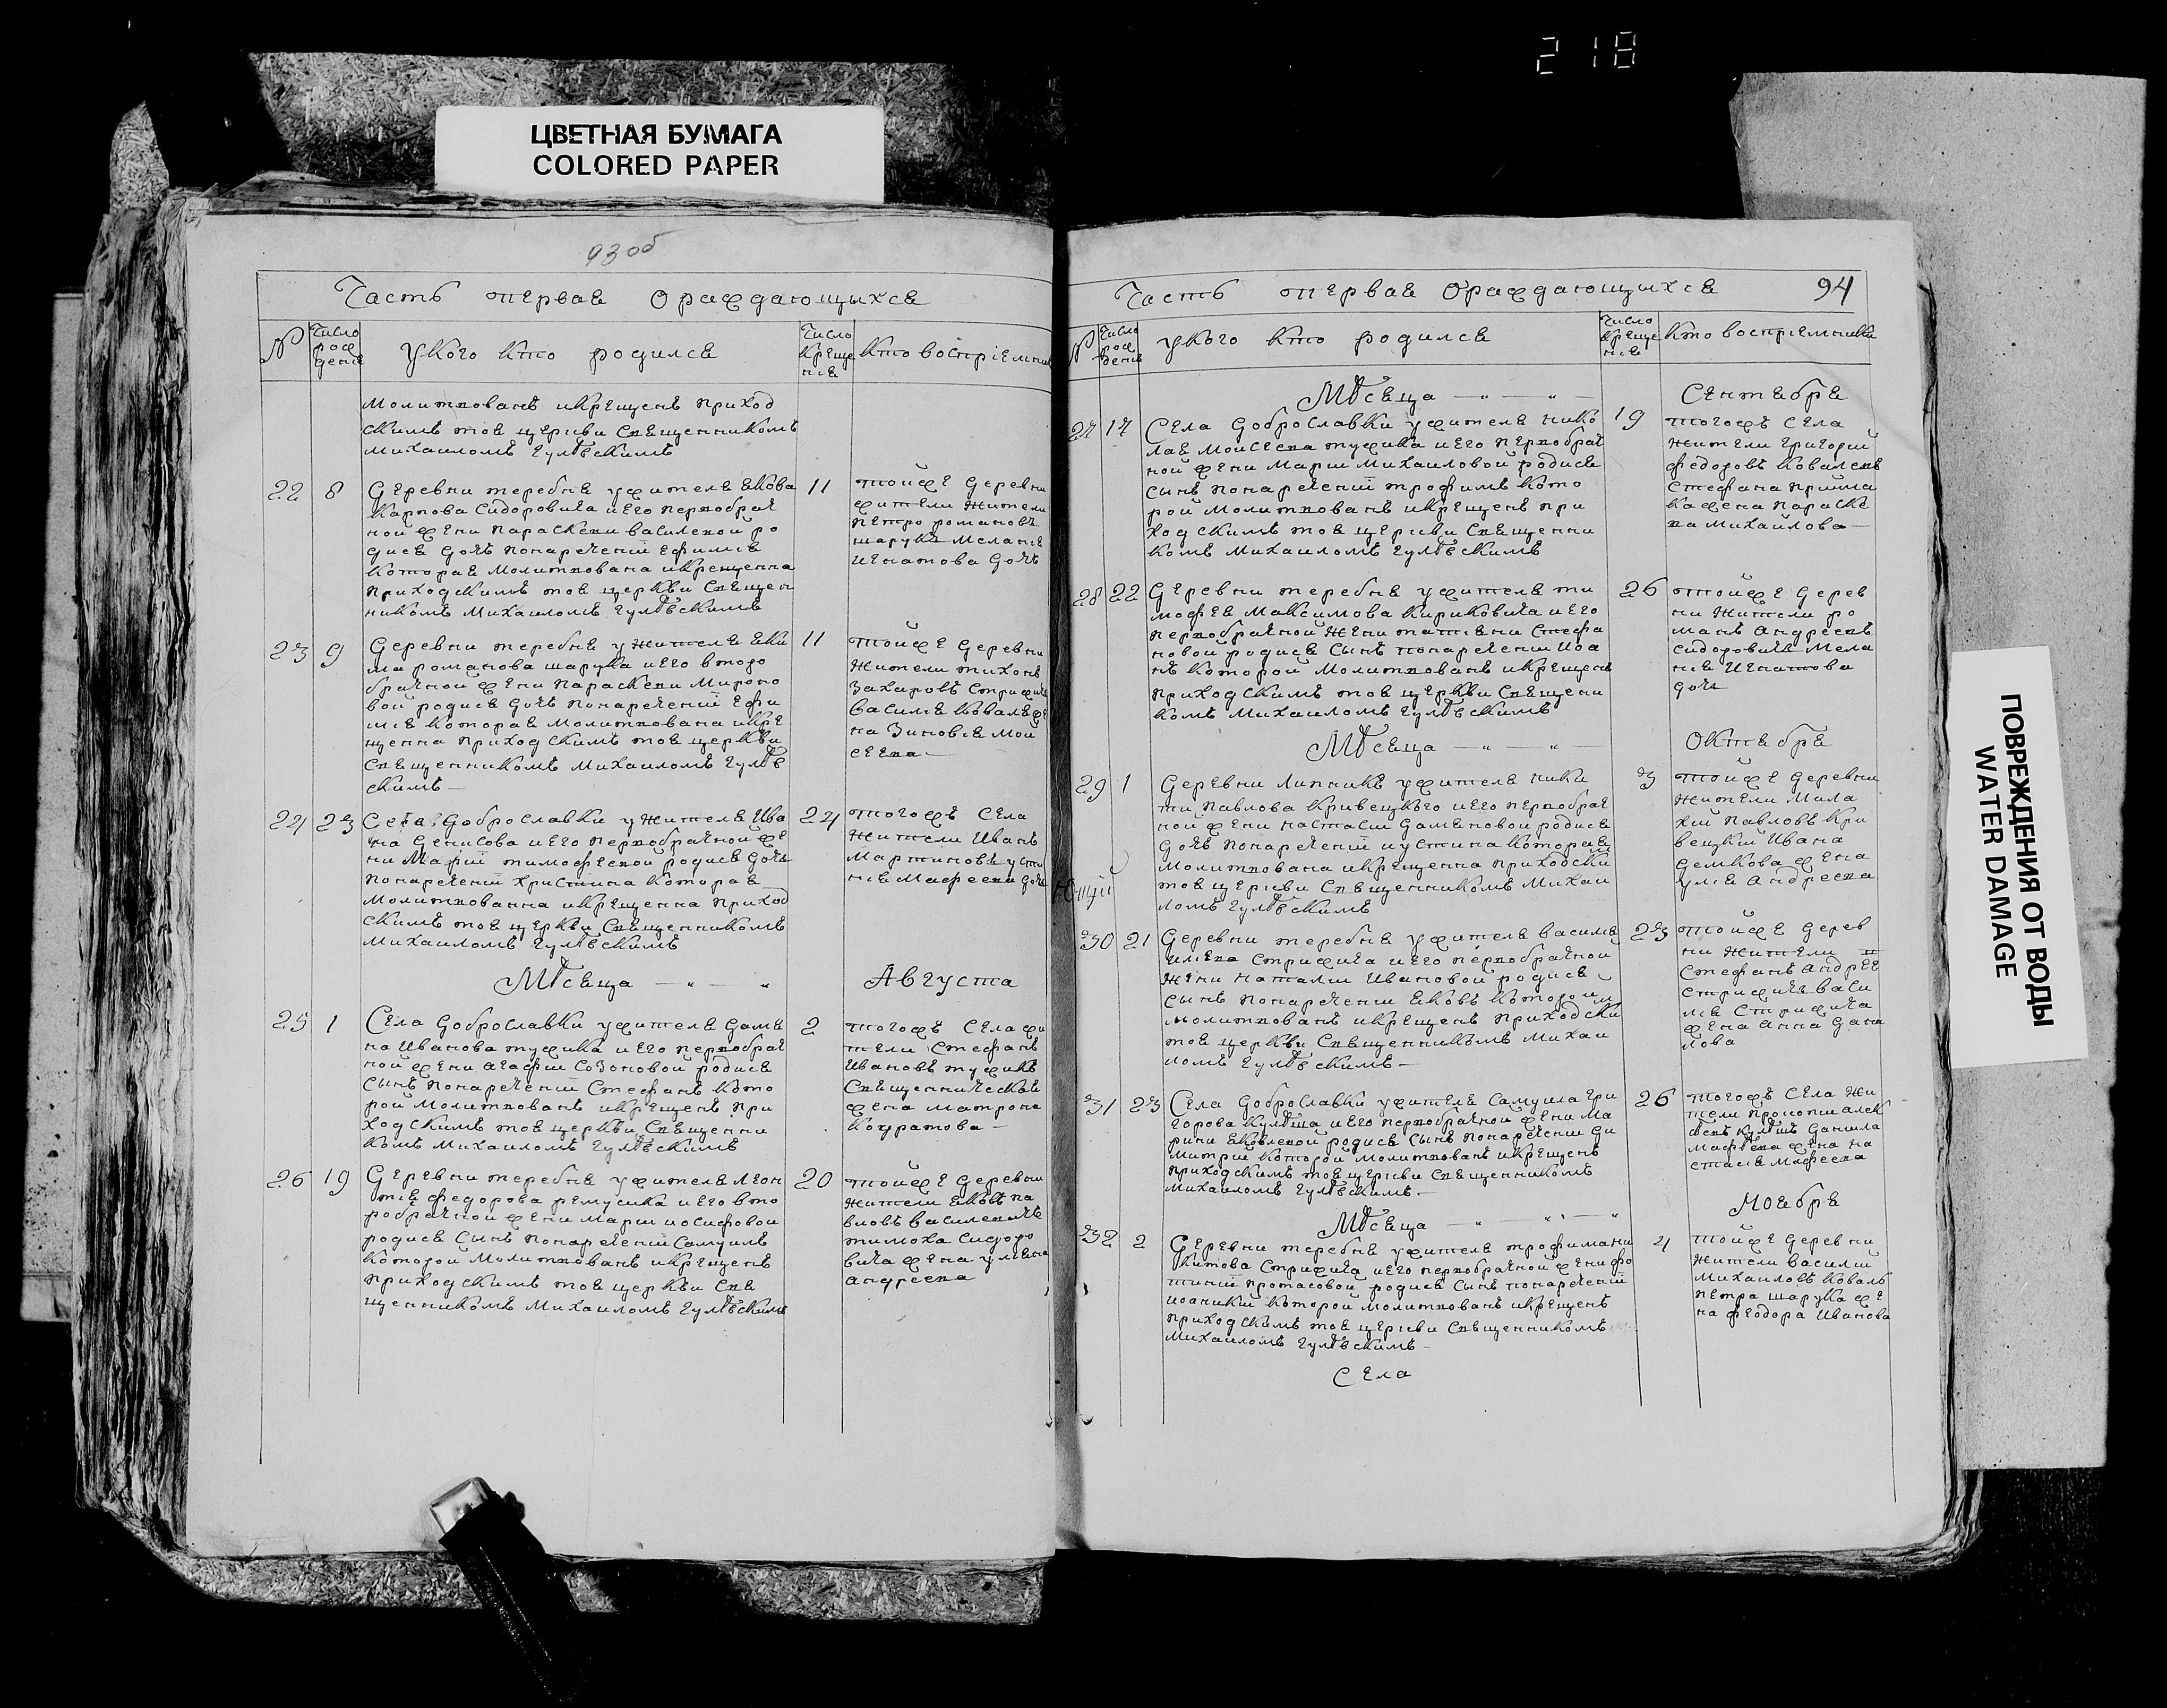 218
ЦВЕТНАЯ БУМАГА
COLORED PAPER
93 об
Часть первая О раждающыхся
N
Число рож деня
У кого кто родился
Число креще нія
Кто воспріемник
Молитвованъ и крещенъ приход
скимъ тоя церкви Священникомъ
Михаиломъ Гулѣвскимъ
22 8 11
Деревни теребня у жителя Якова
Карпова Сидоровича и его первобрач
ной жени Параскеви Василевой ро
дися дочъ понаречений Ефимія
которая молитвована и крещенна
приходскимъ тоя церкви Священ
никомъ Михаиломъ Гулѣвскимъ
тойже деревни
жители жители
Петро романовъ
шарука Меланія
Игнатова дочъ
23 9 11
Деревни теребня у жителя Яки
ма романова шарука и его второ
брачной жени Параскеви Мироно
вой родися дочъ понаречений Ефи
мія которая молитвована и кре
щенна приходскимъ тоя церкви
Священникомъ Михаиломъ Гулѣв
скимъ
тойже деревни
жители тихонъ
Захаровъ Стрижич
Василя Коваля же
на Зиновія Мои
сеева
24 23 24
Села Доброславки у жителя Ива
на Денисова и его первобрачной же
ни Марии тимофеевой родися дочъ
понаречений Христина которая
молитвованна и крещенна приход
скимъ тоя церкви Священникомъ
Михаиломъ Гулѣвскимъ
тогожъ Села
жители Иванъ
Мартиновъ усти
нія Мафеева дочъ
Мѣсяца Августа
25 1 2
Села Доброславки у жителя Дамя
на Иванова тужика и его первобрач
ной жени Агафии Созоновой родися
Сынъ понаречений Стефанъ кото
рой молитвованъ и крещенъ при
ходскимъ тоя церкви Священни
комъ Михаиломъ Гулѣвскимъ
тогожъ Села жи
тели Стефанъ
Ивановъ тужикъ
Священническая
жена Матрона
Кондратова
26 19 20
Деревни теребня у жителя Леон
тія федорова ремусика и его вто
робрачной жени Марии иосифовой
родися Сынъ понаречений Самуилъ
которой молитвованъ и крещенъ
приходскимъ тоя церкви Свя
щенникомъ Михаиломъ Гулѣвскимъ
тойже деревни
жители Яковъ Па
вловъ Василевичъ
тимоха Сидоро
вича жена улияна
Андреева
94
Часть первая О раждающыхся
N
Число рож деня
У кого кто родился
Число креще нія
Кто воспріемники
Мѣсяца Сентября
27 17 19
Села Доброславки у жителя Нико
лая Моисеева тужика и его первобрач
ной жени Марии Михаиловой родися
Сынъ понаречений трофимъ кото
рой молитвованъ и крещенъ при
ходскимъ тоя церкви Священни
комъ Михаиломъ Гулѣвскимъ
тогожъ Села
жители Григорий
федоровъ Коваленъ
Стефана Прийма
ка жена Параске
ва Михайлова
28 22 26
Деревни теребня у жителя ти
мофея Максимова Кириковича и его
первобрачной жени татияни Стефа
новой родися Сынъ понаречении иоа
нъ которой молитвованъ и крещенъ
приходскимъ тоя церкви Священи
комъ Михаиломъ Гулѣвскимъ
тойже дерев
ни жители ро
манъ Андреевъ
Сидоровичъ Мела
нія Игнатова
дочъ
Мѣсяца Октября
29 1 3
Деревни Липники у жителя ники
ти Павлова Кривецкого и его первобрач
ной жени настасии Дамяновой родися
дочъ понаречений иустина которая
молитвована и крещенна приходски
тоя церкви Священникомъ Михаи
ломъ Гулѣвскимъ
тойже деревни
жители Мала
хий Павловъ Кри
вецкий Ивана
Демкова жена
улия Андреева
30 21 23
Деревни теребня у жителя Василя
илиева Стрижича и его первобрачной
жени наталии Ивановой родися
Сынъ понаречении Яковъ которои
молитвованъ и крещенъ приходски
тоя церкви Священникомъ Михаи
ломъ Гулѣвскимъ
тойже дерев
ни жители
Стефанъ Андрее
Стрижичъ Васи
ля Стрижича
жена Анна Дани
лова
31 23 26
Села Доброславки у жителя Самуила Гри
горова Кулѣша и его первобрачной жени Ма
рини Яковлевой родися Сынъ понаречении Ди
митрий которой молитвованъ и крещенъ
приходскимъ тоя церкви Священникомъ
Михаиломъ Гулѣвскимъ
тогожъ Села жи
тели Прокопий Алек
Кулѣшъ Данила
Мафѣева жена на
стасія Мафеева
Мѣсяца Ноября
32 2 4
Деревни теребня у жителя трофима ни
китова Стрижича и его первобрачной жени фо
тинии Протасовой родися Сынъ понаречений
иоаникий которой молитвованъ и крещенъ
приходскимъ тоя церкви Священникомъ
Михаиломъ Гулѣвскимъ
тойже деревни
жители Василий
Михаиловъ Коваль
Петра шарука же
на феодора Иванова
Села
ПОВРЕЖДЕНИЯ ОТ ВОДЫ
WATER DAMAGE